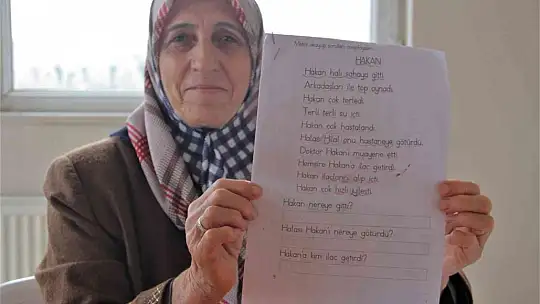 HAKAN
Hakan halı sahaya gitti.
Arkadaşları ile top oynadı.
Hakan çok terledi.
Terli terli su içti.
Hakan çok hastalandı.
Halası Hilal onu hastaneye götürdü.
Doktor Hakan'ı muayene etti.
Hemşire Hakan'a ilaç getirdi.
Hakan ilaçlarını alıp içti.
Hakan çok hızlı iyileşti.
Hakan nereye gitti?
Halası Hakan'ı nereye götürdü?
Hakan'a kim ilaç getirdi?